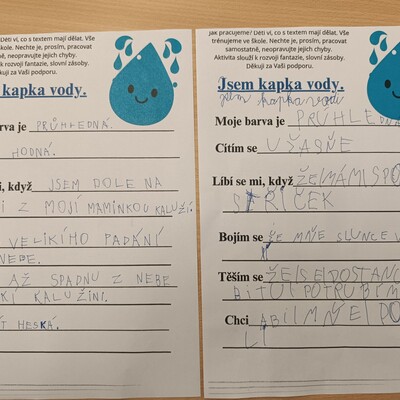 Děti ví, co s textem mají dělat. Vše
škole. Nechte je, prosím, pracovat
samostatně, neopravujte jejich chyby.
k rozvoji fantazie, slovní zásoby.
Děkuji za Vaši podporu.
kapka vody.
arva je PRŮHLEDNÁ.
HODNÁ.
i, když JSEM DOLE NA
I Z MOJÍ MAMINKOU KALUŽÍ.
VELIKÍHO PADÁNÍ
NEBE.
AŽ SPADNU Z NEBE
KÍ KALUŽINI.
T HESKÁ.
Jak pracujeme? Děti ví, co s textem mají dělat. Vše
trénujeme ve škole. Nechte je, prosím, pracovat
samostatně, neopravujte jejich chyby.
Aktivita slouží k rozvoji fantazie, slovní zásoby.
Děkuji za Vaši podporu.
Jsem kapka vody.
Jsem kapka vodi
Moje barva je PRŮHLEDNÁ
Cítím se UŽASŇE
Líbí se mi, když ŽEMÁMISPO
STŘÍČEK
Bojím se ŽE MŇE SLUNCE V
Těším se ŽE|SE|DOSTANU
BI|TO|POTRUBÍM
Chci ABI|MŇE|PO
LI